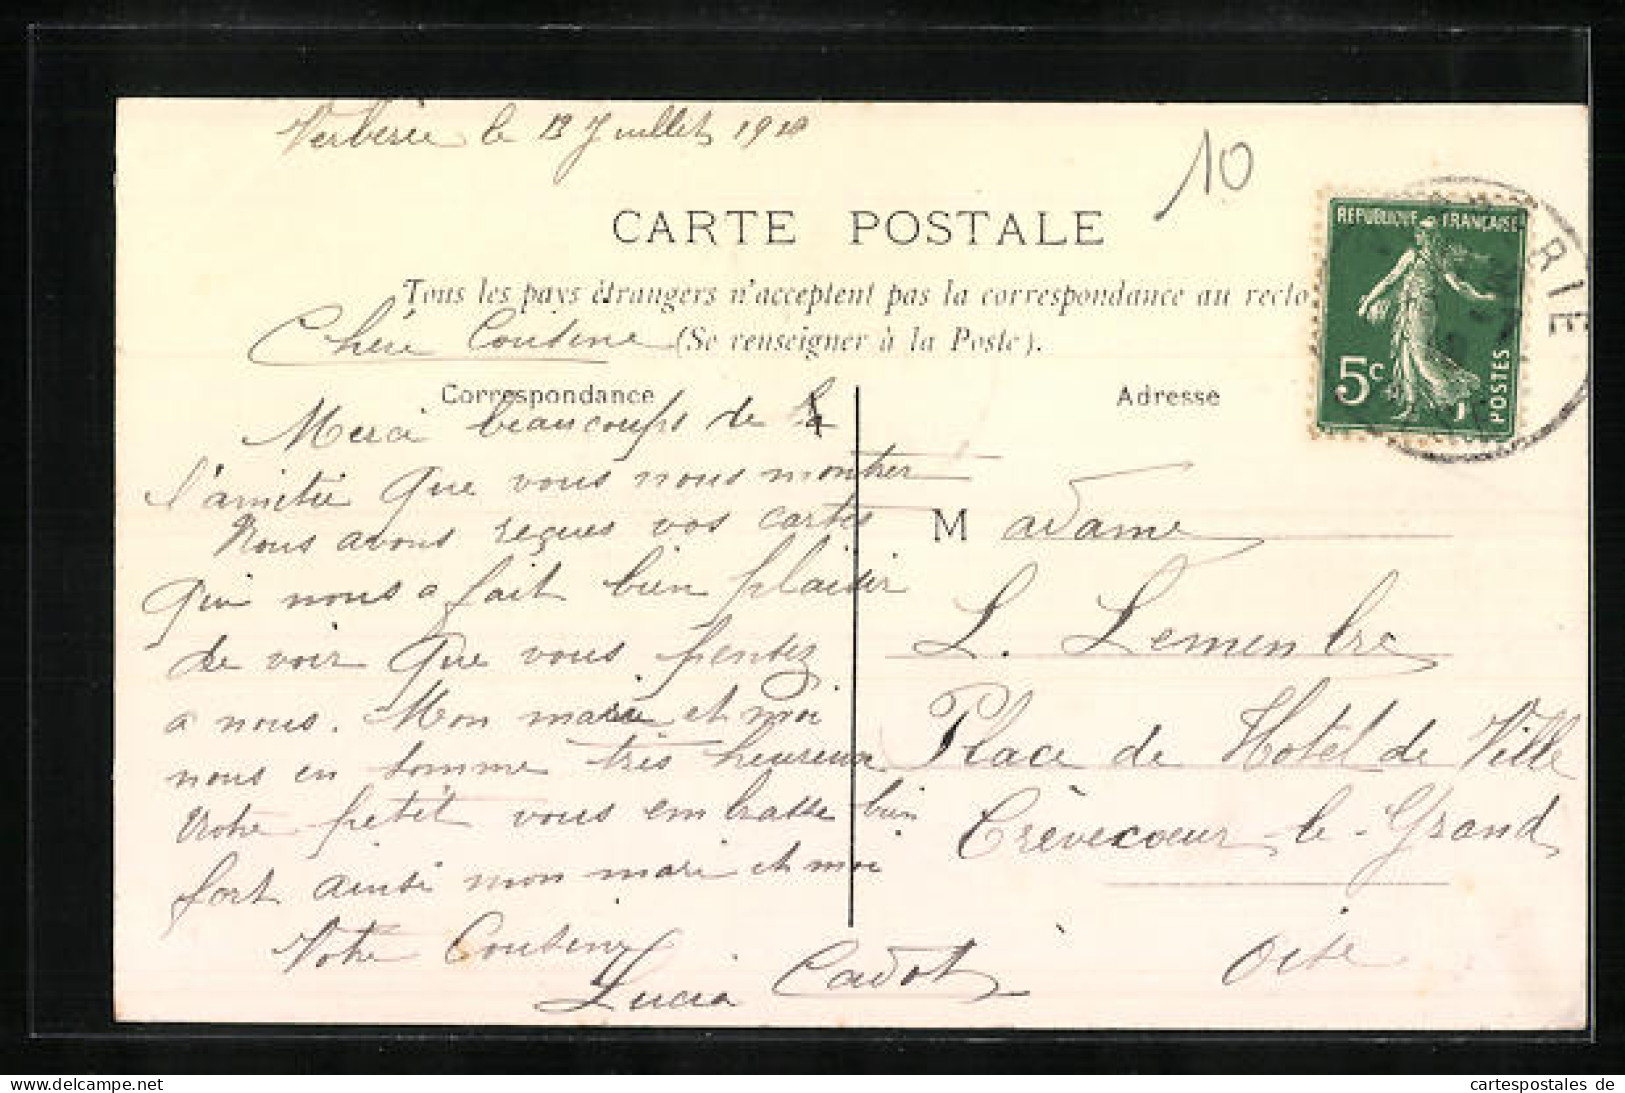 Verberie le 13 Juillet 1910
10
CARTE POSTALE
REPUBLIQUE FRANÇAISE
5c
POSTES
RIE
Tous les pays étrangers n'acceptent pas la correspondance au recto
(Se renseigner à la Poste).
Chére Cousine
Correspondance
Merci beaucoups de
l'amitié que vous nous montrer
Nous avons reçues vos cartes
Qui nous a fait bien plaisir
de voir que vous pensez
a nous. Mon marie et moi
nous en somme très heureux
Votre petit vous embrasse bien
fort ainsi mon mari et moi
Votre Cousine
Lucia Cadot
Adresse
Madame
L. Lemenbre
Place de Hotel de Ville
Crèvecoeur-le-Grand
Oise
cartespostales-online.com/fr
cartespostales de